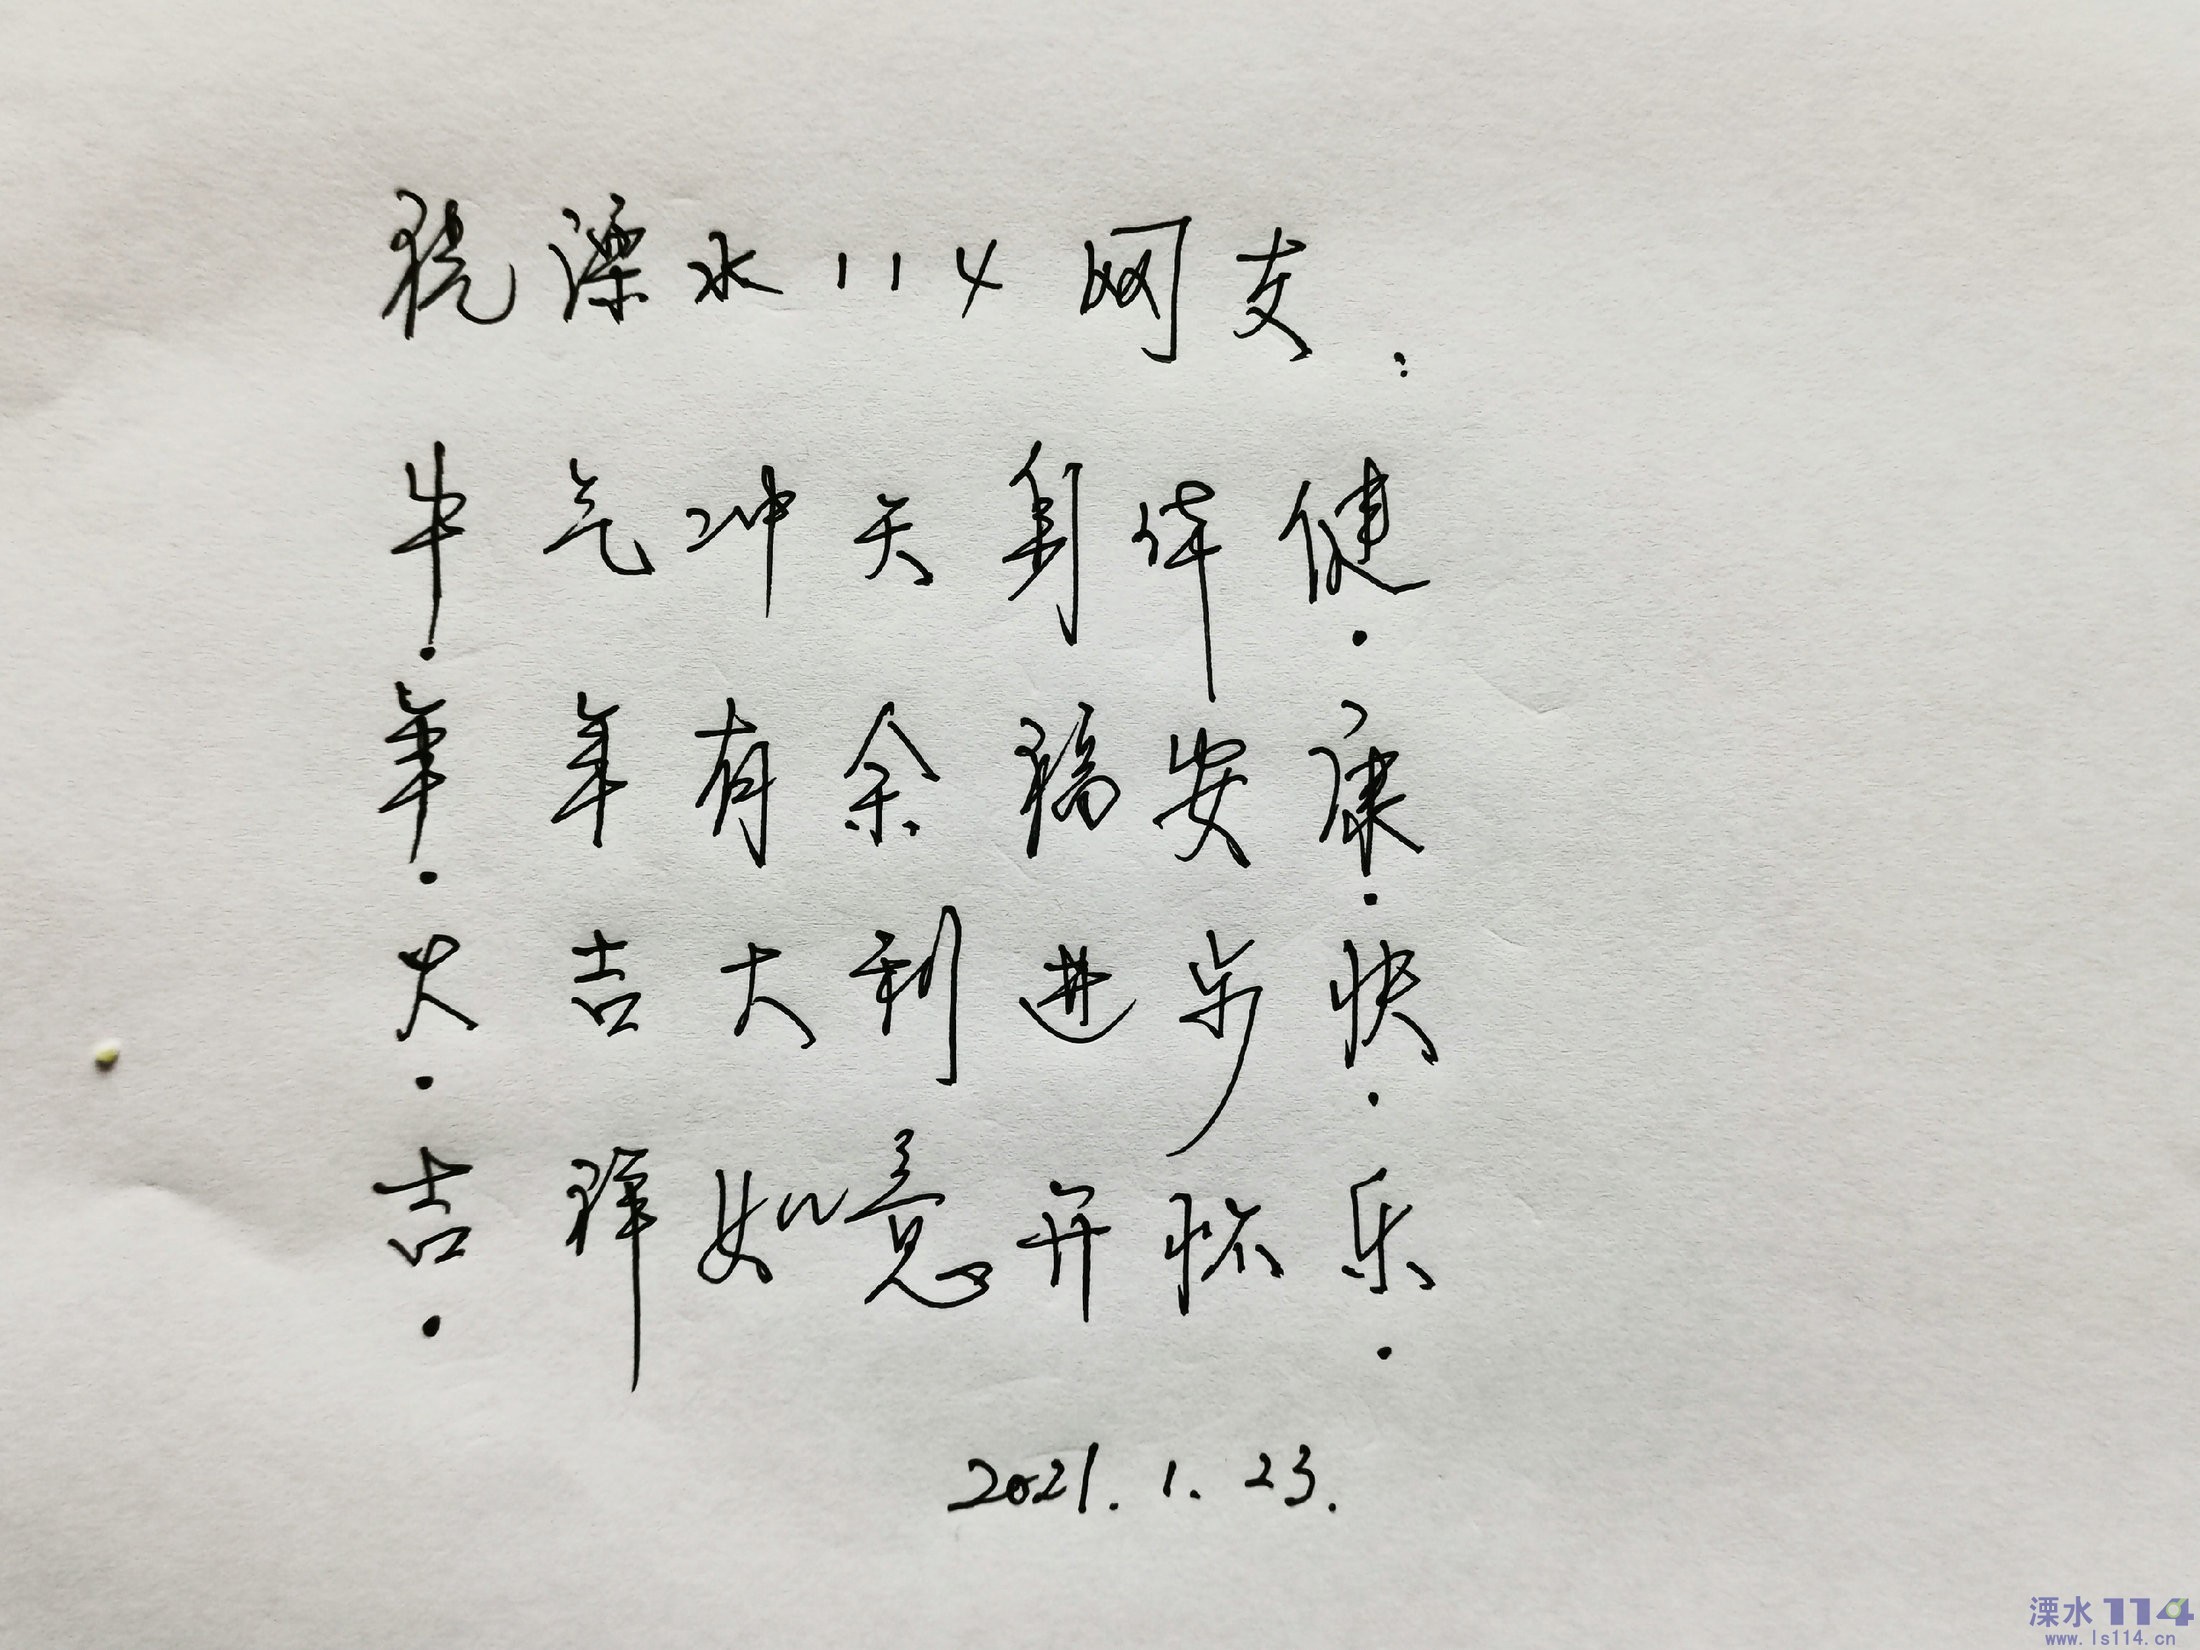 祝溧水114网友:
牛气冲天身体健.
年年有余福安康.
大吉大利进步快.
吉祥如意开怀乐.
2021.1.23.
溧水114
www.ls114.cn